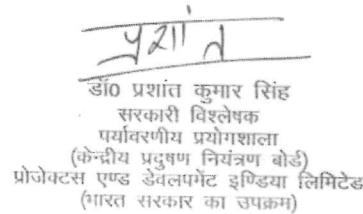 प्रशांत
डॉ0 प्रशांत कुमार सिंह
सरकारी विश्लेषक
पर्यावरणीय प्रयोगशाला
(केन्द्रीय प्रदुषण नियंत्रण बोर्ड)
प्रोजेक्टस एण्ड डेवलपमेंट इण्डिया लिमिटेड
(भारत सरकार का उपक्रम)